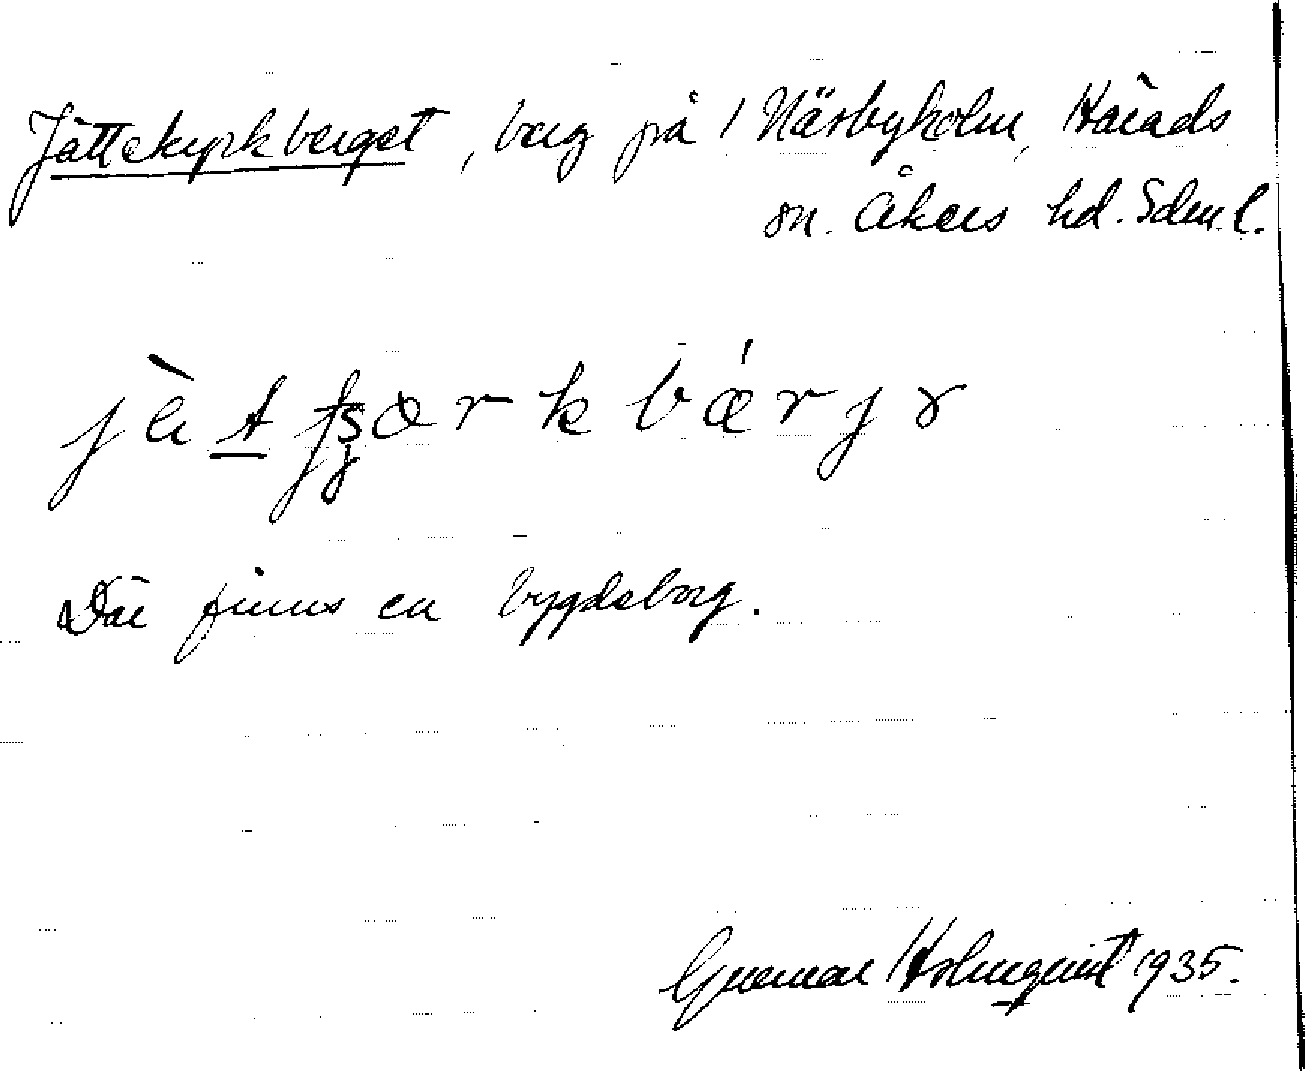 Jättekyrkberget, berg på Närbyholm, Härads
sn. Åkers hd. Sdml.
Där finns en bygdeborg.
Gunnar Holmquist 1935.